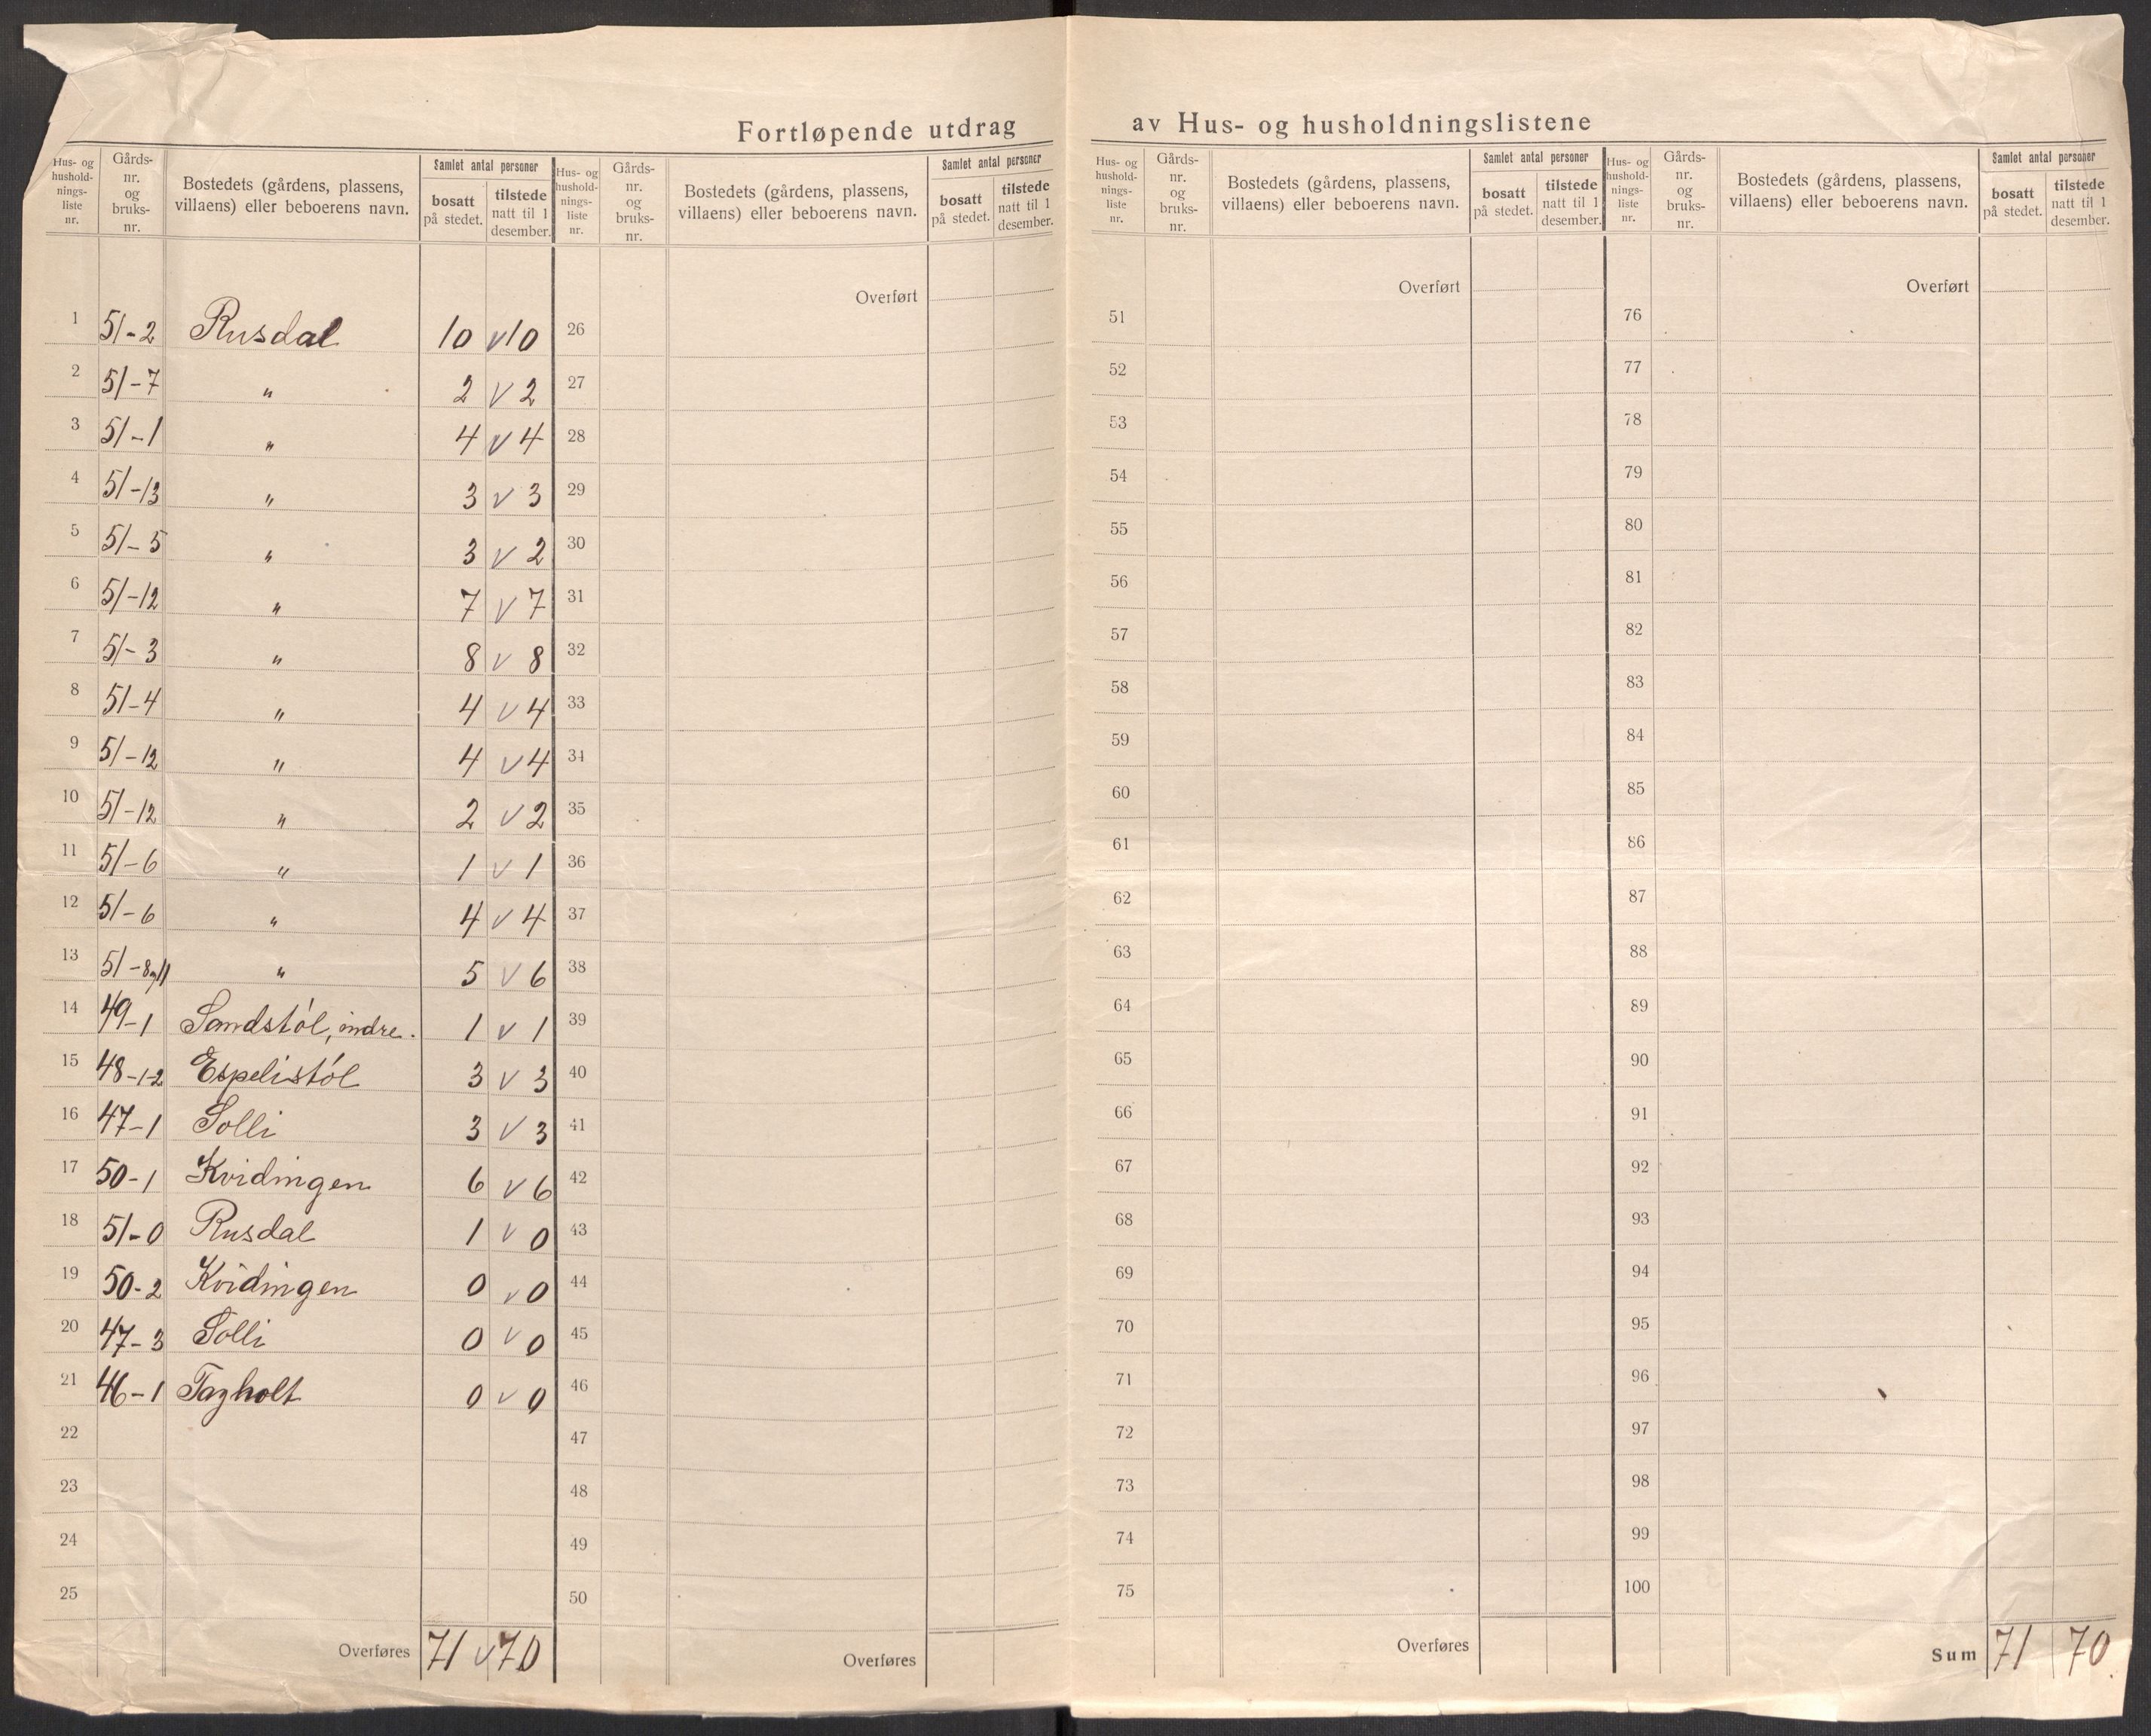 Fortløpende utdrag av Hus- og husholdningslistene
Hus- og hushold- nings- liste nr. | Gårds- nr. og bruks- nr. | Bostedets (gårdens, plassens, villaens) eller beboerens navn. | Samlet antal personer | bosatt på stedet. | tilstede natt til 1 desember.
Hus- og hushold- nings- liste nr. | Gårds- nr. og bruks- nr. | Bostedets (gårdens, plassens, villaens) eller beboerens navn. | Samlet antal personer | bosatt på stedet. | tilstede natt til 1 desember.
Hus- og hushold- nings- liste nr. | Gårds- nr. og bruks- nr. | Bostedets (gårdens, plassens, villaens) eller beboerens navn. | Samlet antal personer | bosatt på stedet. | tilstede natt til 1 desember.
Hus- og hushold- nings- liste nr. | Gårds- nr. og bruks- nr. | Bostedets (gårdens, plassens, villaens) eller beboerens navn. | Samlet antal personer | bosatt på stedet. | tilstede natt til 1 desember.
1 51-2 Rusdal 10 v 10
2 51-7 " 2 v 2
3 51-1 " 4 v 4
4 51-13 " 3 v 3
5 51-5 " 3 v 2
6 51-12 " 7 v 7
7 51-3 " 8 v 8
8 51-4 " 4 v 4
9 51-12 " 4 v 4
10 51-12 " 2 v 2
11 51-6 " 1 v 1
12 51-6 " 4 v 4
13 51-8,11 " 5 v 6
14 49-1 Sandstøl, indre. 1 v 1
15 48-1-2 Espelistøl 3 v 3
16 47-1 Solli 3 v 3
17 50-1 Kvidingen 6 v 6
18 51-0 Rusdal 1 v 0
19 50-2 Kvidingen 0 v 0
20 47-3 Solli 0 v 0
21 46-1 Tagholt 0 v 0
22
23
24
25
Overføres 71 v 70
Overført
26
27
28
29
30
31
32
33
34
35
36
37
38
39
40
41
42
43
44
45
46
47
48
49
50
Overføres
Overført
51
52
53
54
55
56
57
58
59
60
61
62
63
64
65
66
67
68
69
70
71
72
73
74
75
Overføres
Overført
76
77
78
79
80
81
82
83
84
85
86
87
88
89
90
91
92
93
94
95
96
97
98
99
100
Sum 71 70